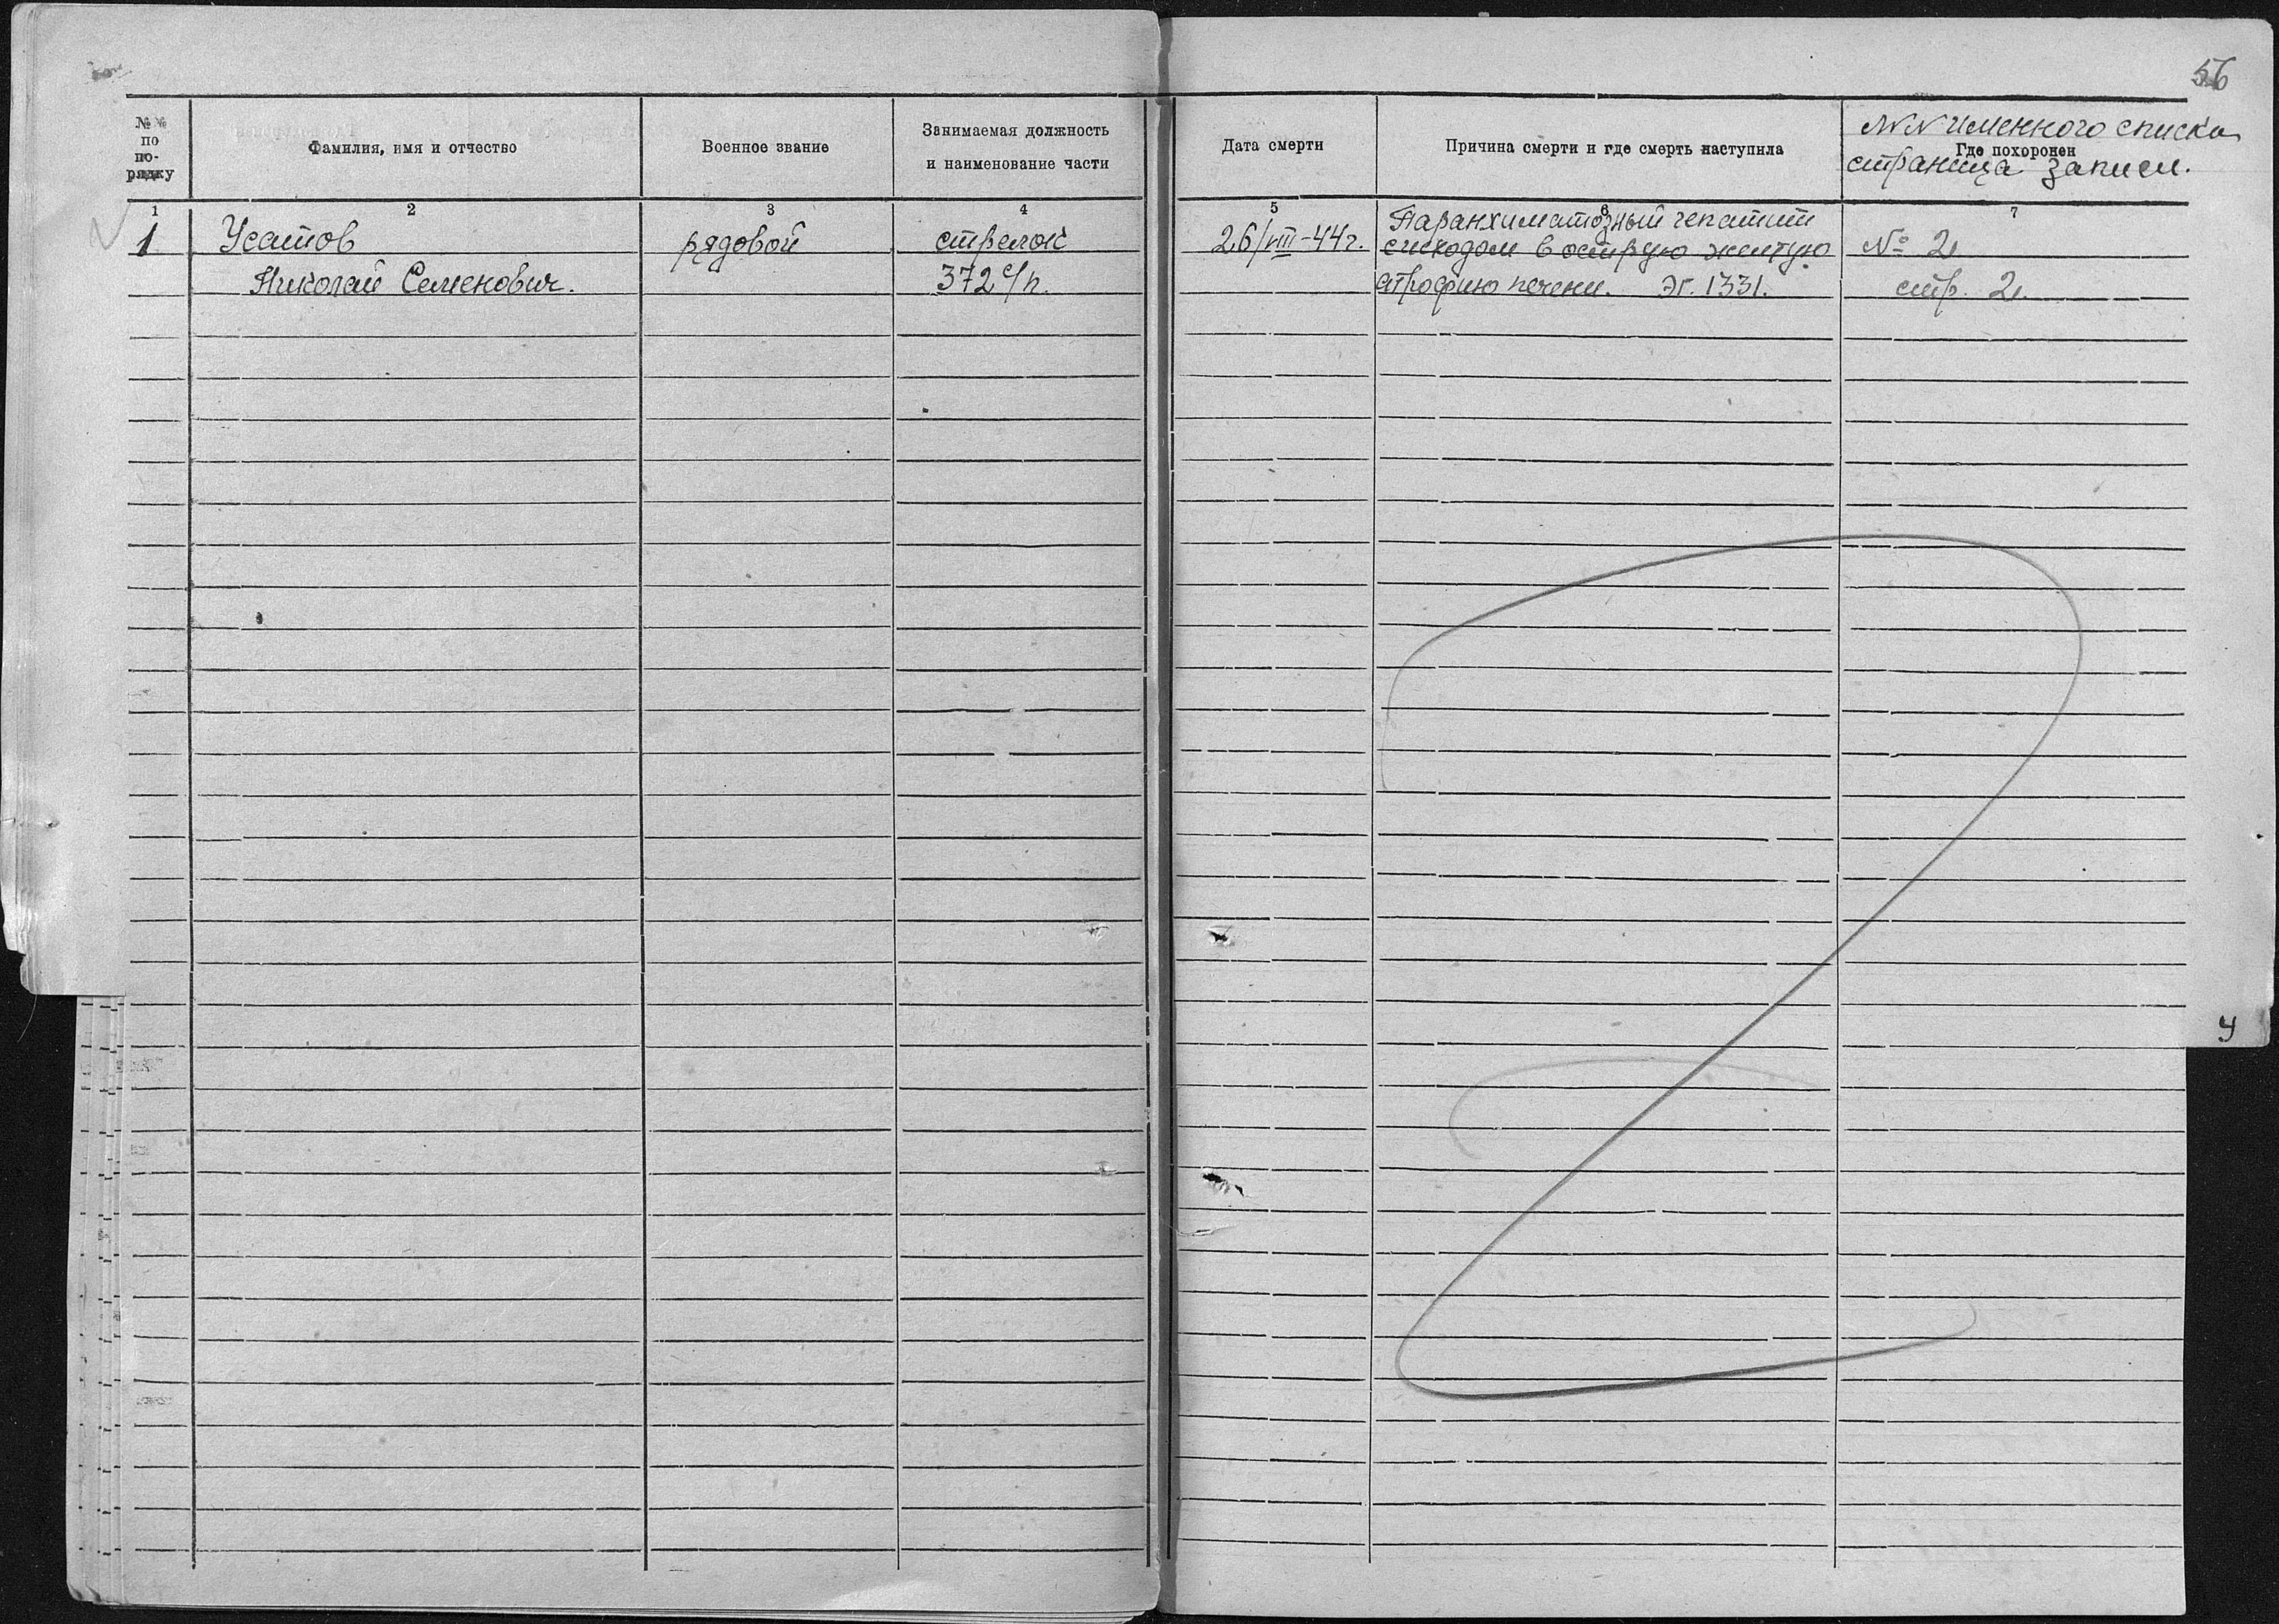 56
№№ по по-рядку
Фамилия, имя и отчество
Военное звание
Занимаемая должность
и наименование части
Дата смерти
Причина смерти и где смерть наступила
№№ именного списка
Где похоронен
страница записи.
1 2 3 4 5 6 7
1 Усатов рядовой стрелок 26/VIII-44г. Паранхиматозный гепатит
с исходом в острую желтую № 2
Николай Семенович. 372 с/п. атрофию печени. ЭГ. 1331. стр. 2.
У